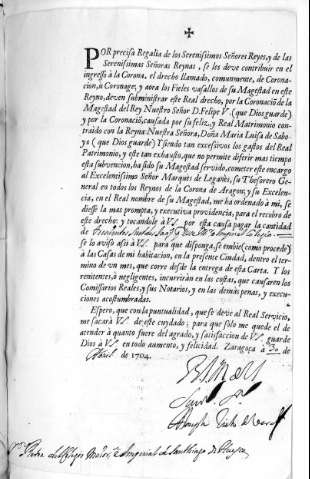 ✠
POR precisa Regalia de los Serenissimos Señores Reyes, y de las
Serenissimas Señoras Reynas, se les deve contribuir en el
ingresso à la Corona, el drecho llamado, comunmente, de Corona-
cion, ò Coronage; y aora los Fieles vasallos de su Magestad en este
Reyno, deven subministrar este Real drecho, por la Coronaciõ de la
Magestad del Rey Nuestro Señor D. Felipe V. (que Dios guarde)
y por la Coronaciõ, causada por su feliz, y Real Matrimonio con-
traido con la Reyna Nuestra Señora, Doña Maria Luisa de Sabo-
ya (que Dios guarde) Y siendo tan excesivos los gastos del Real
Patrimonio, y este tan exhausto, que no permite diferir mas tiempo
esta subvencion, ha sido su Magestad servido, cometer este encargo
al Excelentissimo Señor Marques de Leganès, su Thesorero Ge-
neral en todos los Reynos de la Corona de Aragon; y su Excelen-
cia, en el Real nombre de su Magestad, me ha ordenado à mi, se
diesse la mas prompta, y executiva providencia, para el recobro de
este drecho; y tocandole à VS por esta causa pagar la cantidad
de
se lo aviso assi à VS para que disponga, se embie (como procede)
à las Casas de mi habitacion, en la presente Ciudad, dentro el ter-
mino de vn mes, que corre desde la entrega de esta Carta. Y los
renitentes, ò negligentes, incurrirán en las costas, que causaren los
Comissarios Reales, y sus Notarios, y en las demàs penas, y execu-
ciones acostumbradas.
Espero, que con la puntualidad, que se deve al Real Servicio,
me sacará VS de este cuydado; para que solo me quede el de
atender à quanto fuere del agrado, y satisfaccion de VS guarde
Dios à VS en todo aumento, y felicidad. Zaragoça à 30 de
Abril de 1704.